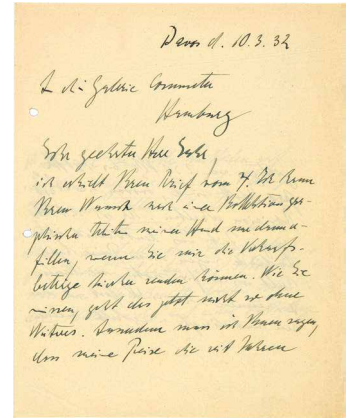 Davos d. 10.3.32
die Galerie Commeter
Hamburg
Sehr geehrter Herr
ich erhielt Ihren Brief vom 7. Ich kann
Ihren Wunsch nach einer Kollektion gra-
phischer meiner Hand nur dann
füllen, wenn Sie mir die Verkaufs-
beträge hierher senden können. Wie Sie
wissen, geht das jetzt nicht so ohne
Weiteres. Ausserdem muss ich Ihnen sagen,
dass meine Preise die seit Jahren